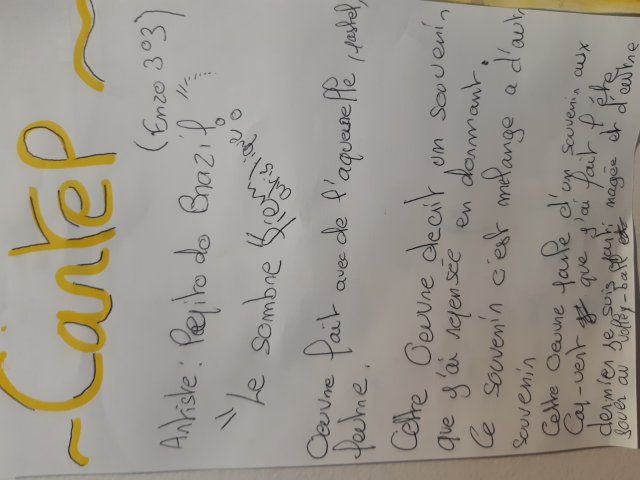 ~ Cartel ~
Artiste: Pepito do Brazil (Enzo 303)
"Le sombre
Oeuvre fait avec de l'aquarelle, pastel,
feutre.
Cette Oeuvre decrit un souvenir
que j'ai repensée en dormant.
Ce souvenir c'est mélangé a d'autr
souvenir
Cette Oeuvre parle d'un souvenir aux
Cap-vert que j'ai fait l'été
dernier je suis parti nagée et d'autre
jouer au volley-ball